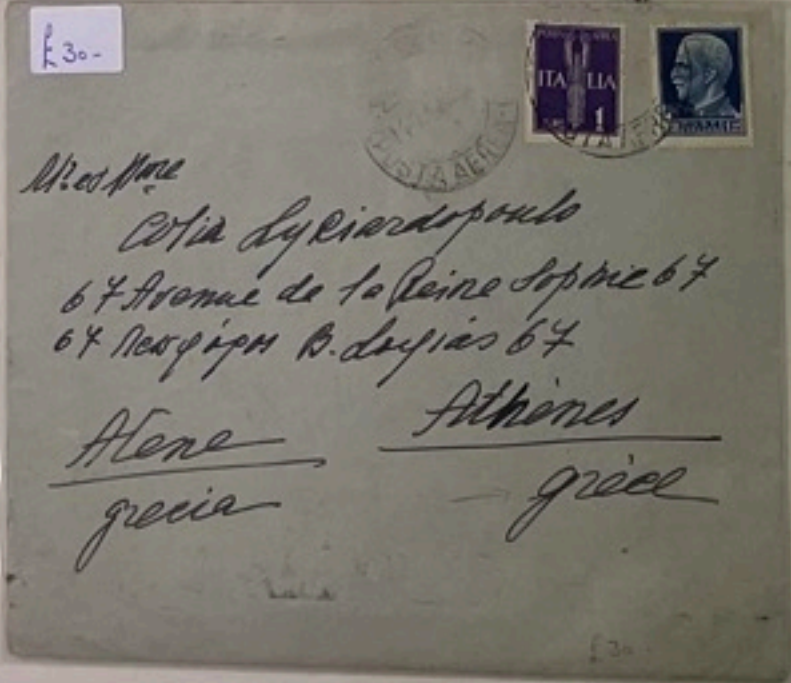 £30-
POSTA AEREA
ITALIA
1
POSTA AEREA
Mr et Mme
Cotia Lykiardopoulo
67 Avenue de la Reine Sophie 67
67 Λεωφόρος Β. Σοφίας 67
Atene
Athènes
grecia
grèce
£30-